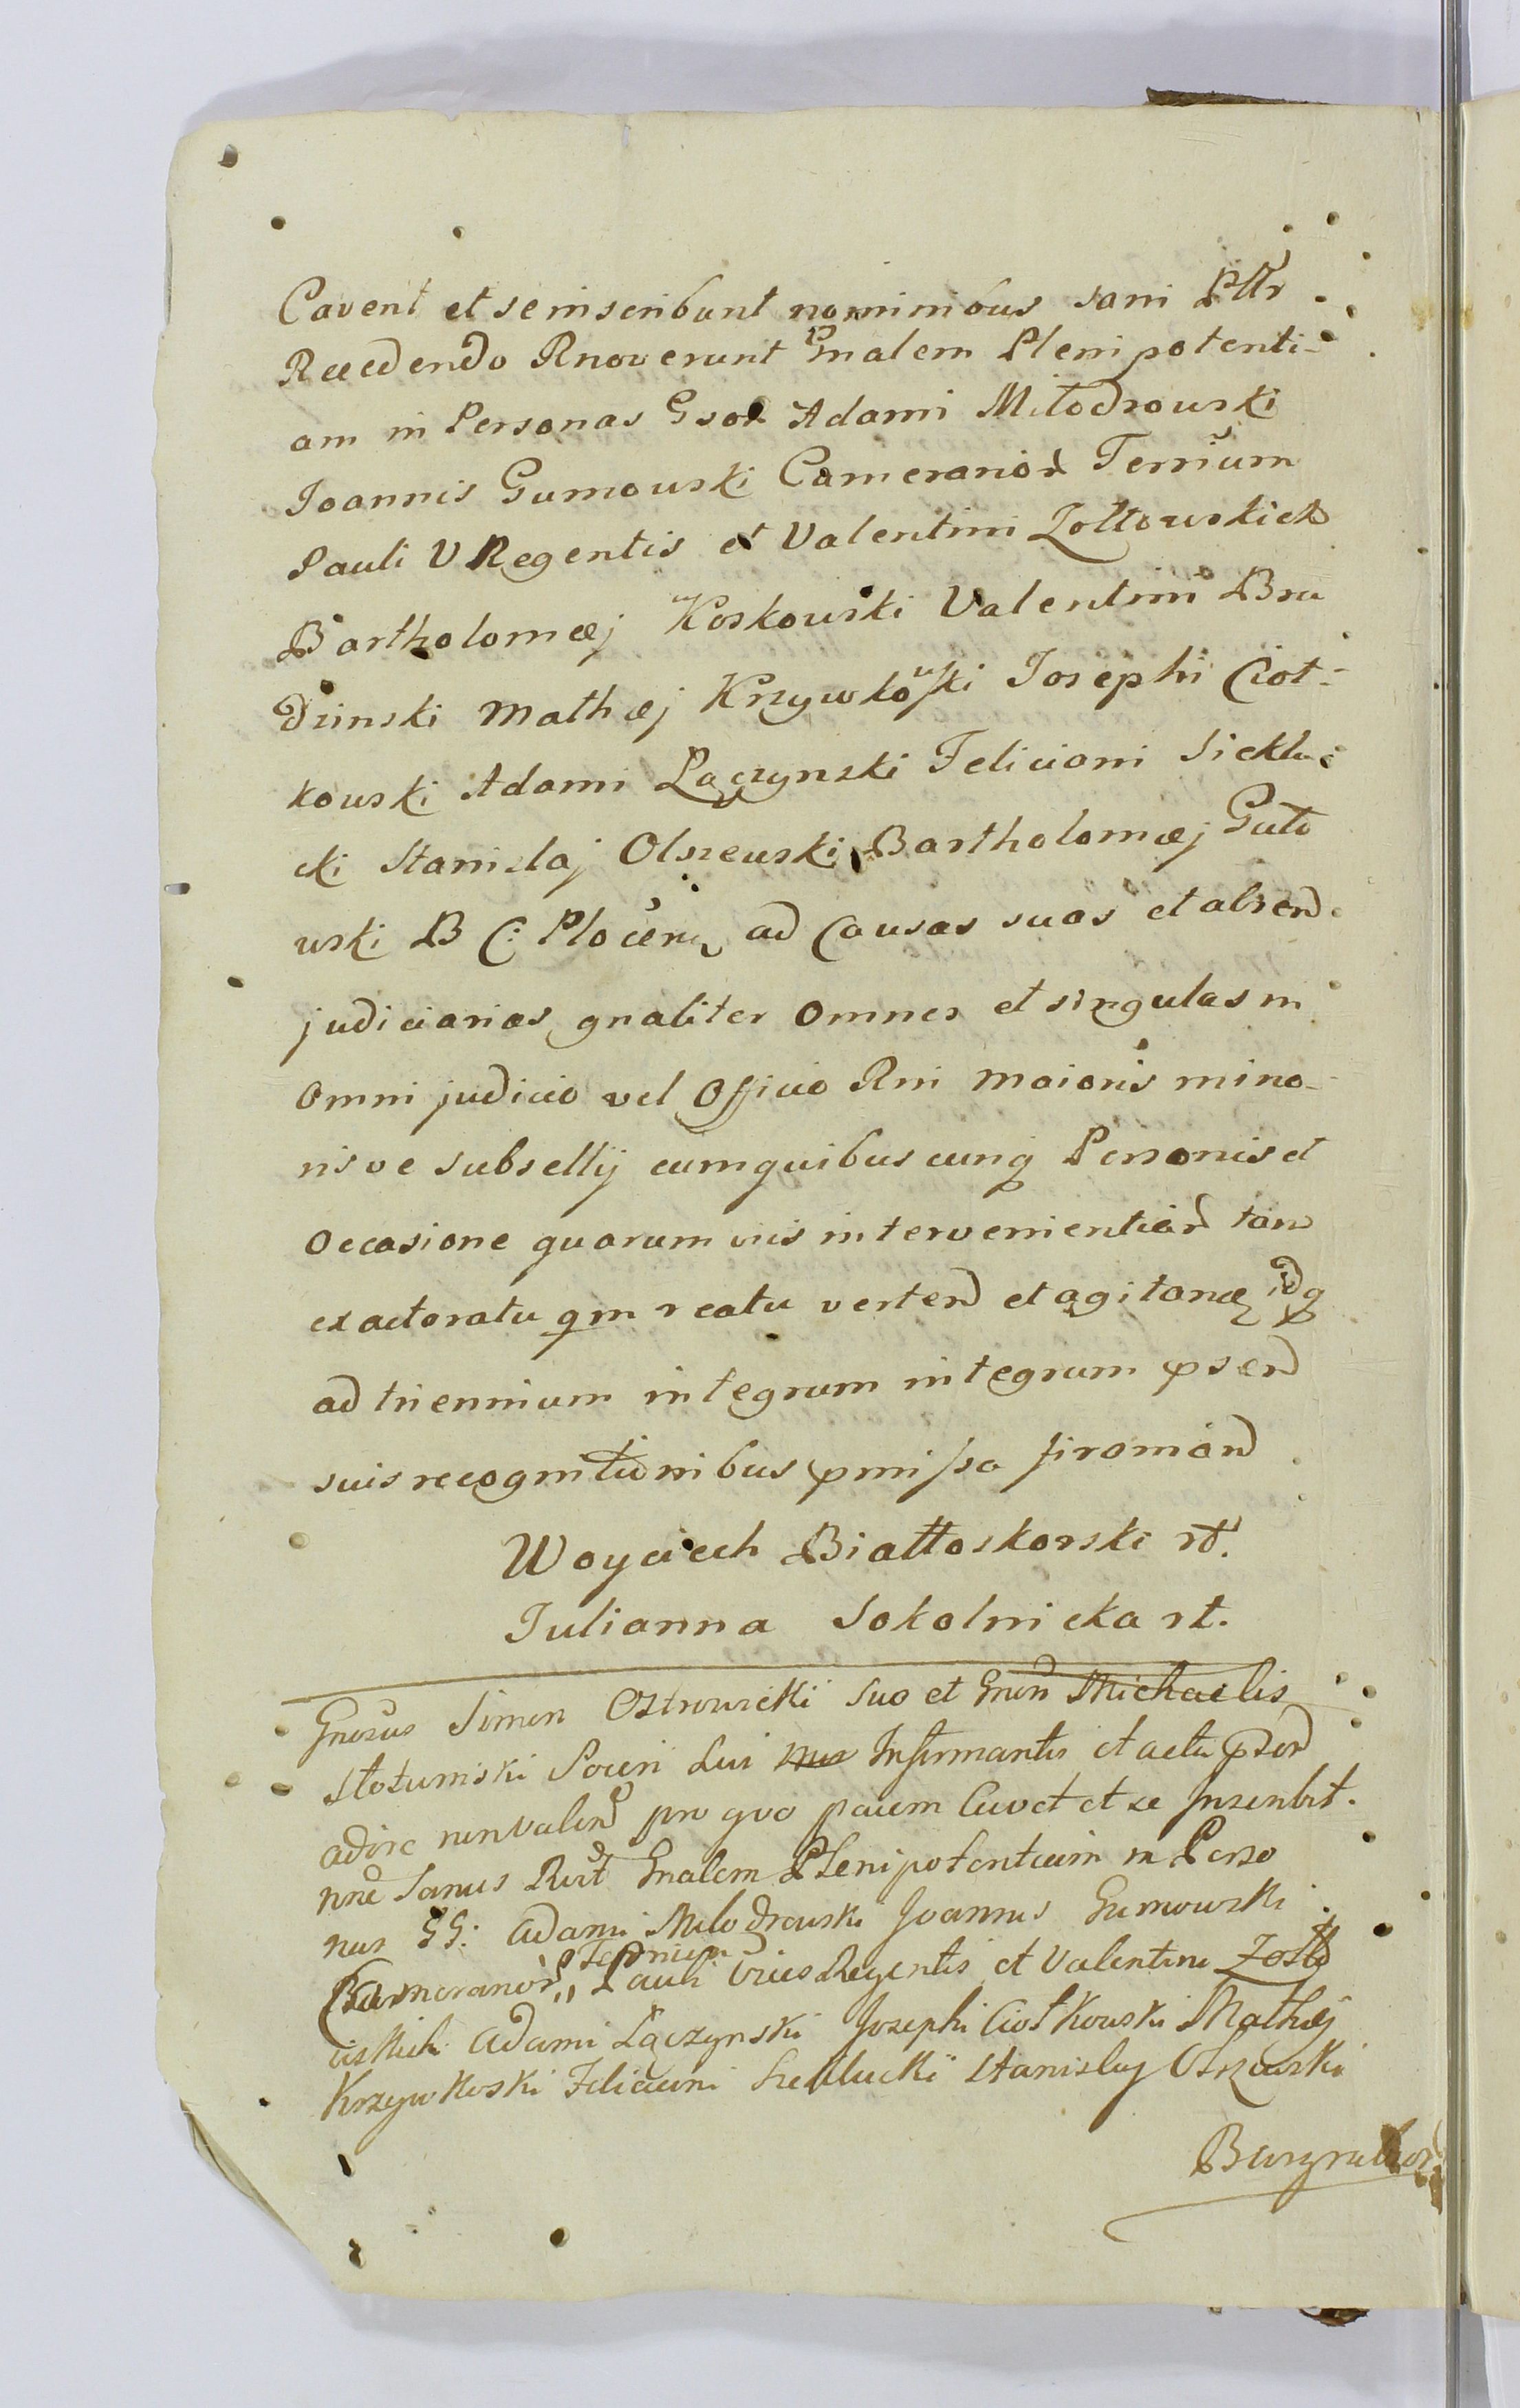 Cavent et se inscribunt nominibus sani Pttr
Recedendo Rnoverunt Gnalem Plenipotenti-
am in Personas Gsor Adami Miłodrowski
Joannis Gumowski Camerarior Terrium
Pauli V Regentis et Valentini Zołtowskich
Bartholomæj Koskowski Valentini Bru
dzinski Mathæj Krzywkowski Josephi Cioł-
kowski Adami Łączynski Feliciani Sieklu-
cki Stanislaj Olszewski Bartholomæj Guto
wski B C: Plocen ad Causas suas et absend
judiciarias gnaliter omnes et singulas in
omni judicio vel Officio Rni maioris mino-
risve subsellij cum quibuscunq Personis et
occasione quarumvis intervenientiar tam
ex actoratu qm reatu vertend et agitand idq
ad triennium integrum integrum psend
suis recognitionibus pmissa firomand
Woyciech Białłoskorski rt.
Julianna Sokolnicka rt.
Gnosus Simon Ostrowicki suo et Gnon Michaelis
Stotumski Soceri sui Infirmantis et acta psend
adire nonvalend pro quo pacem Cavet et se Inscribit.
nne Sanus Rect Gnalem Plenipotentiam in Perso
nas GG: Adami Milodrowski Joannis Gumowski
Camerarior Terrium Pauli Vices Regentis et Valentini Zołto
wskich Adami Łączynski Josephi Ciołkowski Mathæj
Krzywkoski Feliciani Siekluckii Stanislaj Olszewski
Burgrabior